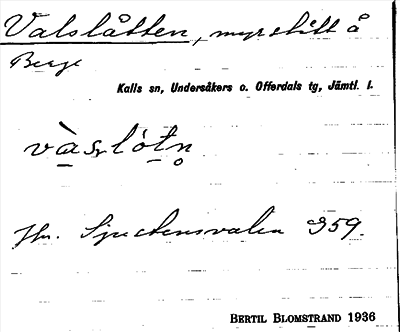 Valslåtten, myrslått å
Berge
Kalls sn, Undersåkers o. Offerdals tg, Jämtl. l.
và̱sḷó̱tn̥
Jfr. 959.
BERTIL BLOMSTRAND 1936